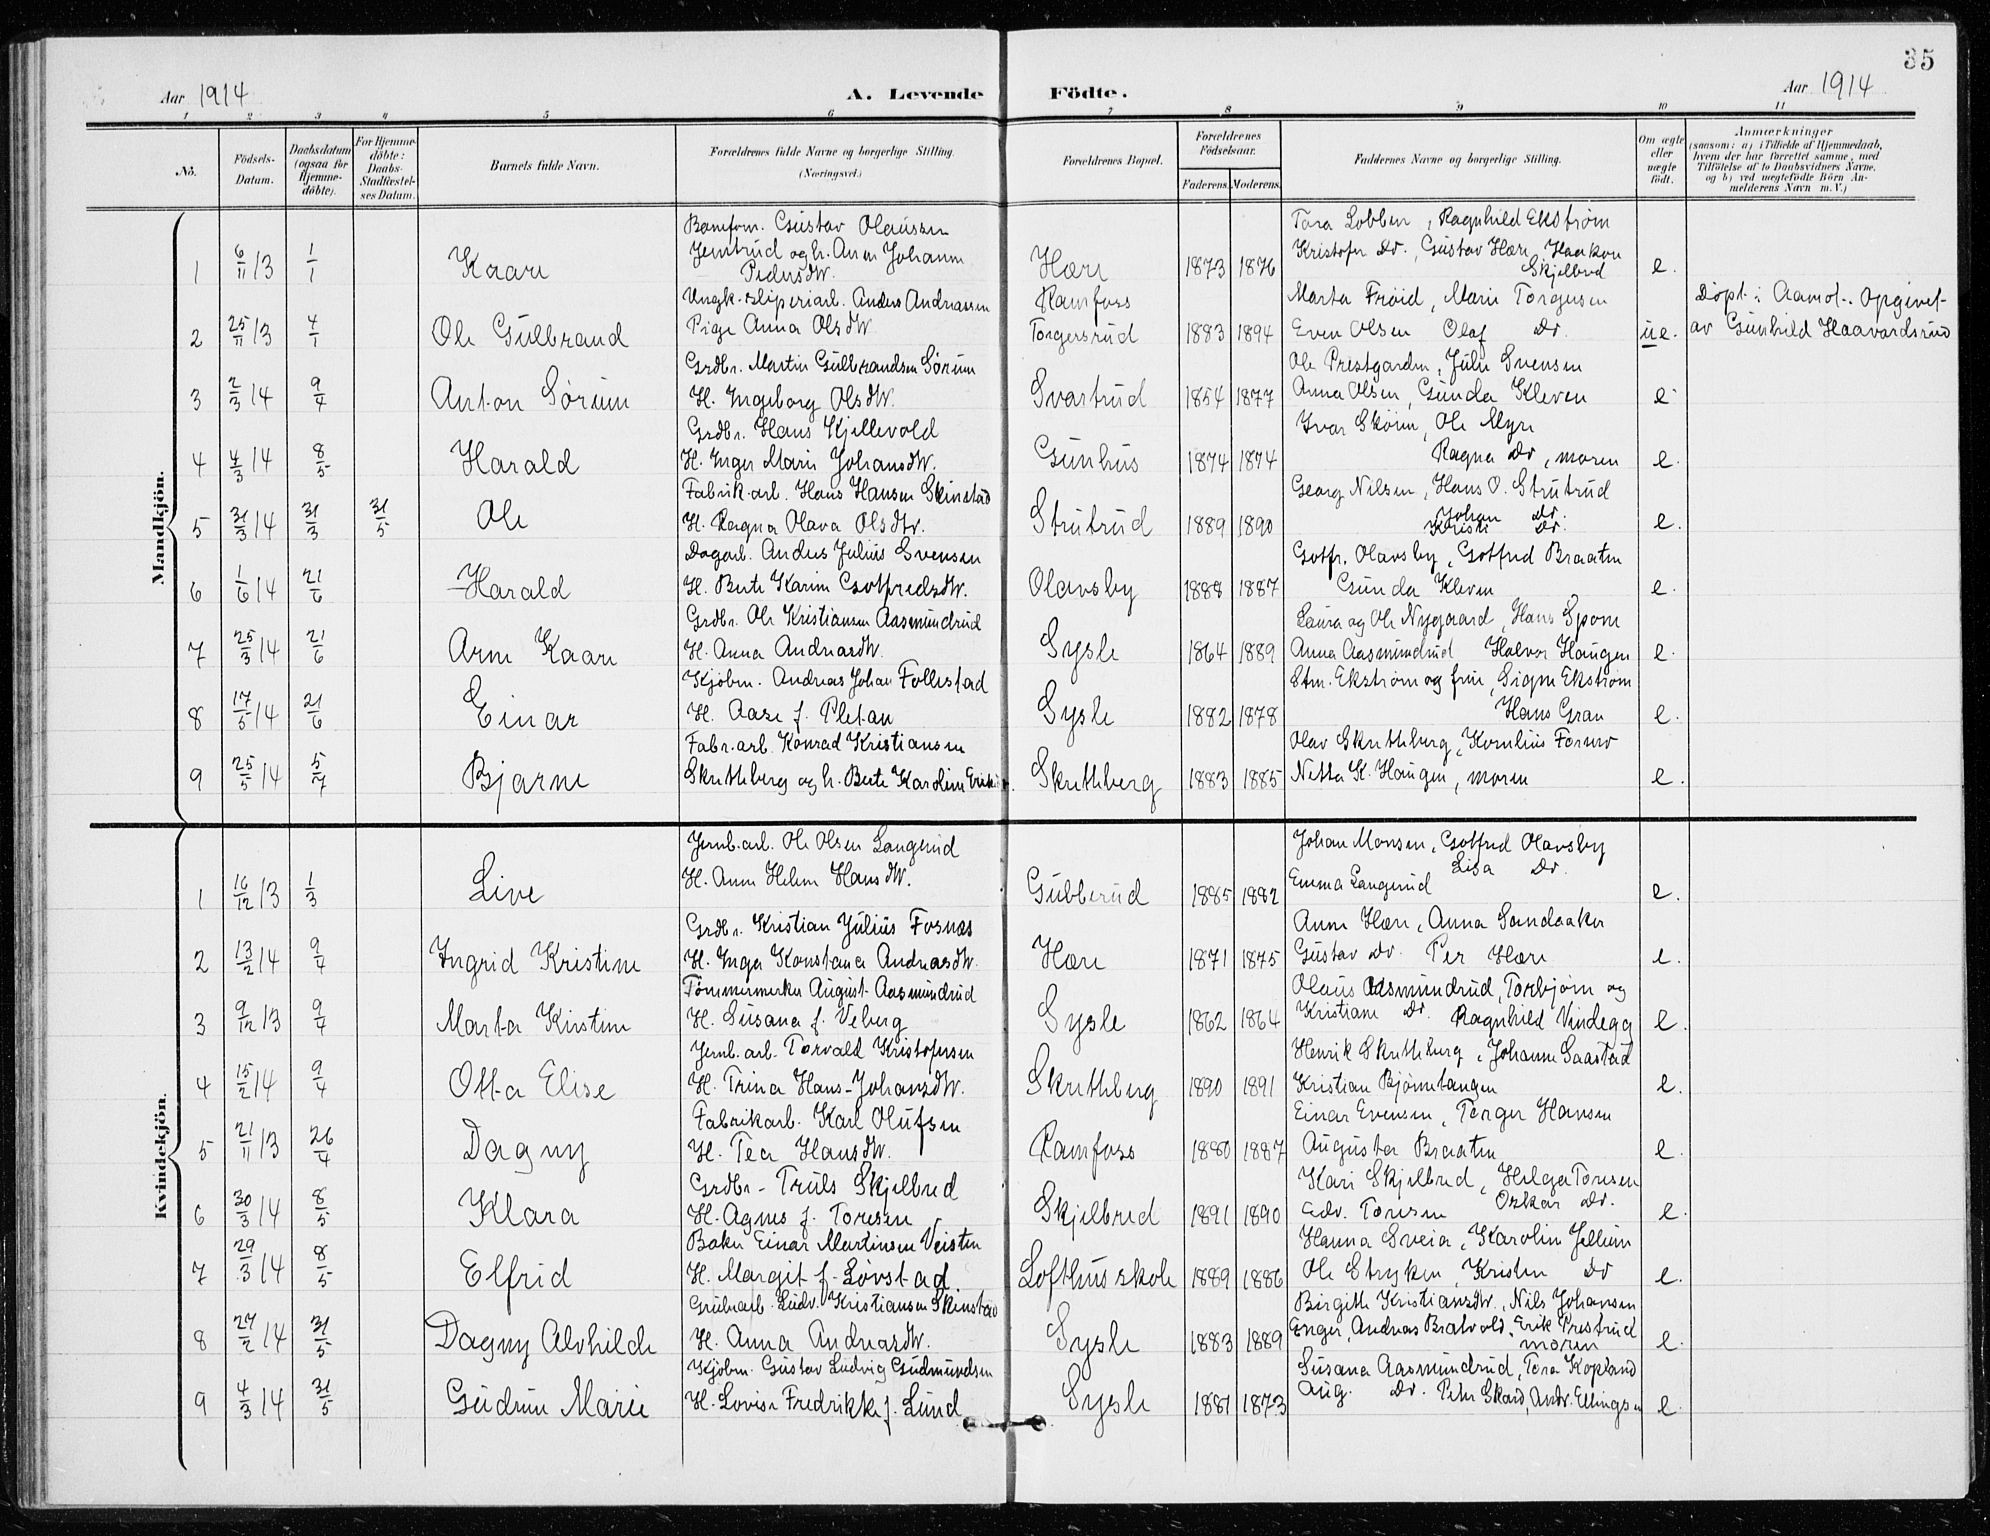 35
Aar 1914 A. Levende Födte. Aar 1914
1 2 3 4 5 6 7 8 9 10 11
No. Födsels-Datum. Daabsdatum (ogsaa for Hjemme-döbte). For Hjemme-döbte: Daabs-Stadfæstel-ses Datum. Barnets fulde Navn. Forældrenes fulde Navne og borgerlige Stilling. (Næringsvei.) Forældrenes Bopæl. Forældrenes Födselsaar. Faderens. Moderens. Faddernes Navne og borgerlige Stilling. Om ægte eller uægte födt. Anmærkninger (saasom: a) i Tilfælde af Hjemmedaab, hvem der har forrettet samme, med Tilföielse af to Daabsvidners Navne, og b) ved uægtefödte Börn An-melderens Navn m. V.)
Mandkjön.
Gustav Olaussen Tora Lobben, Ragnhild Ekström
Jerntrud og h. Anne Johanne Kristofer Do., Gustav Hære, Haakon
1 6/11 13 1/1 Kaare Pedersdtr. Hære 1873 1876 Skjelbred e.
Ungk. sliperiarb. Anders Andreassen Ramfoss Marta Frøid, Marie Torgersen Döpt i Aamot. Opgivet
2 25/11 13 4/1 Ole Gulbrand Pige Anna Olsdtr. Torgersrud 1883 1894 Even Olsen Olaf Do. u.e. av Gunhild Haavardsrud
Grdbr. Martin Gulbrandsen Sörum Ole Prestgarden, Julie Svensen
3 2/3 14 9/4 Anton Sörum H. Ingeborg Olsdtr. Svartrud 1854 1877 Anna Olsen, Gunda Kleven e
Grdbr. Hans Kjellevold Ivar Sköien, Ole Myre
4 4/3 14 8/5 Harald H. Inger Marie Johansdtr. Gunhus 1874 1874 Ragna Do, moren e.
Fabrik.arb. Hans Hansen Skinstad Georg Nilsen, Hans O. Strutrud
5 31/3 14 31/3 31/5 Ole H. Ragna Olava Olsdtr. Strutrud 1889 1890 Johan Do. Kristi Do. e.
Dagarb. Anders Julius Svensen Gotfr. Olavsby, Gotfred Braaten
6 1/6 14 21/6 Harald H. Berte Karine Gotfredsdtr. Olavsby 1888 1887 Gunda Kleven e.
Grdbr. Ole Kristiansen Aasmundrud Laura og Ole Nygaard, Hans Spone
7 25/3 14 21/6 Arne Kaare H. Anna Andreasdtr. Sysle 1864 1889 Anna Aasmundrud Halvor Haugen e.
Kjöbm. Andreas Johan Follestad Stm. Ekström og frue, Signe Ekström
8 17/5 14 21/6 Einar H. Aase f. Pletan Sysle 1882 1878 Hans Gran e.
Fabr.arb. Konrad Kristiansen Olav Skretteberg, Kornelius Fornes
9 25/5 14 5/7 Bjarne Skretteberg og h. Berte Karoline Skretteberg 1883 1885 Netta K. Haugen, moren e.
Kvindekjön.
Jernb.arb. Ole Olsen Langerud Johan Monsen, Gotfred Olavsby
Lisa Do.
1 16/12 13 1/3 Live H. Anne Helene Hansdtr. Gubberud 1885 1882 Emma Langerud e.
Grdbr. Kristian Julius Fosnæs Anne Hære, Anna Sandaaker
2 13/2 14 9/4 Ingrid Kristine H. Inga Konstance Andreasdtr. Hære 1871 1875 Gustav Do. Per Hære e.
Tömmermerker August Aasmundrud Olaus Aasmundrud, Torbjörn og
3 9/12 13 9/4 Marta Kirstine H. Susana f. Veberg Sysle 1862 1864 Kristiane Do. Ragnhild Vindegg e.
Jernb.arb. Torvald Kristofersen Henrik Skretteberg, Johanne Saastad
4 15/2 14 9/4 Otta Elise H. Trina Hans-Johansdtr. Skretteberg 1890 1891 Kristian Bjönnetangen e.
Fabrikarb. Karl Olufsen Einar Evensen, Torger Hansen
5 21/11 13 26/4 Dagny H. Tea Hansdtr. Ramfoss 1880 1887 Augusta Braaten e.
Grdbr. Truls Skjelbred Kari Skjelbred, Helga Toresen
6 30/3 14 8/5 Klara H. Agnes f. Toresen Skjelbred 1891 1890 Edv. Toresen Oskar Do. e.
Baker Einar Martinsen Veisten Hanna Sveia, Karoline Jellum
7 29/3 14 8/5 Elfrid H. Margit f. Lövstad. Lofthus skole 1889 1886 Ole Stryken, Kristen Do e.
Grubearb. Ludv. Kristiansen Skinstad Birgitte Kristiansdtr., Nils Johansen
8 24/2 14 31/5 Dagny Alvhilde H. Anna Andreasdtr. Sysle 1883 1889 Enger, Andreas Bratvold, Erik Prestrud moren e.
Kjöbm. Gustav Ludvig Gudmundsen Susana Aasmundrud, Tora Kopland
9 4/3 14 31/5 Gudrun Marie H. Lovise Fredrikke f. Lund Sysle 1881 1873 Aug. Do. Peter Skard, Andr. Ellingsen e.